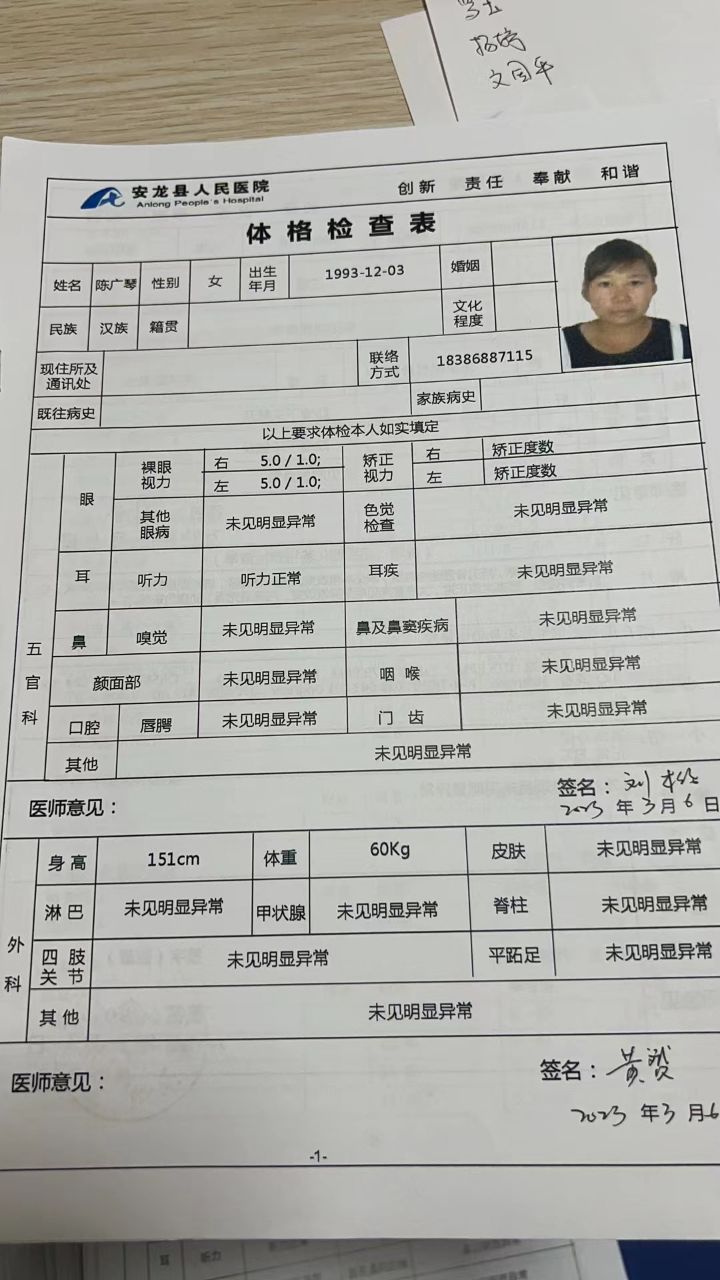 文国华
安龙县人民医院 创新 责任 奉献 和谐
Anlong People's Hospital
体格检查表
姓名 陈广琴 性别 女 出生年月 1993-12-03 婚姻
民族 汉族 籍贯 文化程度
现住所及通讯处 联络方式 18386887115
既往病史 家族病史
以上要求体检本人如实填定
五官科
眼 裸眼视力 右 5.0 / 1.0; 矫正视力 右 矫正度数
左 5.0 / 1.0; 左 矫正度数
其他眼病 未见明显异常 色觉检查 未见明显异常
耳 听力 听力正常 耳疾 未见明显异常
鼻 嗅觉 未见明显异常 鼻及鼻窦疾病 未见明显异常
颜面部 未见明显异常 咽喉 未见明显异常
口腔 唇腭 未见明显异常 门齿 未见明显异常
其他 未见明显异常
医师意见： 签名：
2023 年 3 月 6 日
外科
身高 151cm 体重 60Kg 皮肤 未见明显异常
淋巴 未见明显异常 甲状腺 未见明显异常 脊柱 未见明显异常
四肢关节 未见明显异常 平跖足 未见明显异常
其他 未见明显异常
医师意见： 签名：
2023 年 3 月 6
-1-
耳 听力